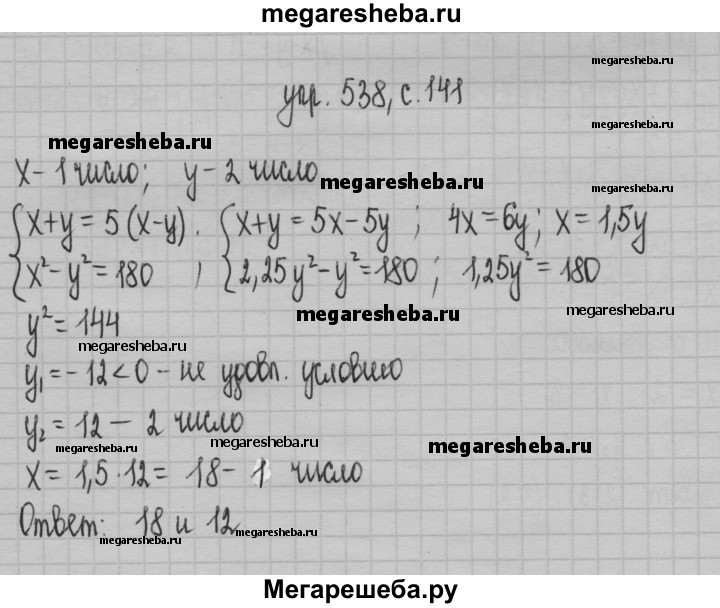 megaresheba.ru
megaresheba.ru
упр. 538, с. 141
megaresheba.ru
megaresheba.ru
x - 1 число; y - 2 число
megaresheba.ru
{ x+y = 5(x-y) ; { x+y = 5x-5y ; 4x=6y ; x = 1,5y
x² - y² = 180 2,25y² - y² = 180 ; 1,25y² = 180
megaresheba.ru
megaresheba.ru
y² = 144
megaresheba.ru
y₁ = -12 < 0 - не удовл. условию
y₂ = 12 - 2 число
megaresheba.ru
megaresheba.ru
megaresheba.ru
x = 1,5 · 12 = 18 - 1 число
Ответ: 18 и 12
megaresheba.ru
megaresheba.ru
Мегарешеба.ру